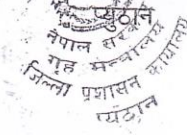 प्युठान
नेपाल सरकार
गृह मन्त्रालय
जिल्ला प्रशासन कार्यालय
प्युठान